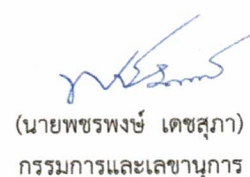 (นายพชรพงษ์ เดชสุภา)
กรรมการและเลขานุการ